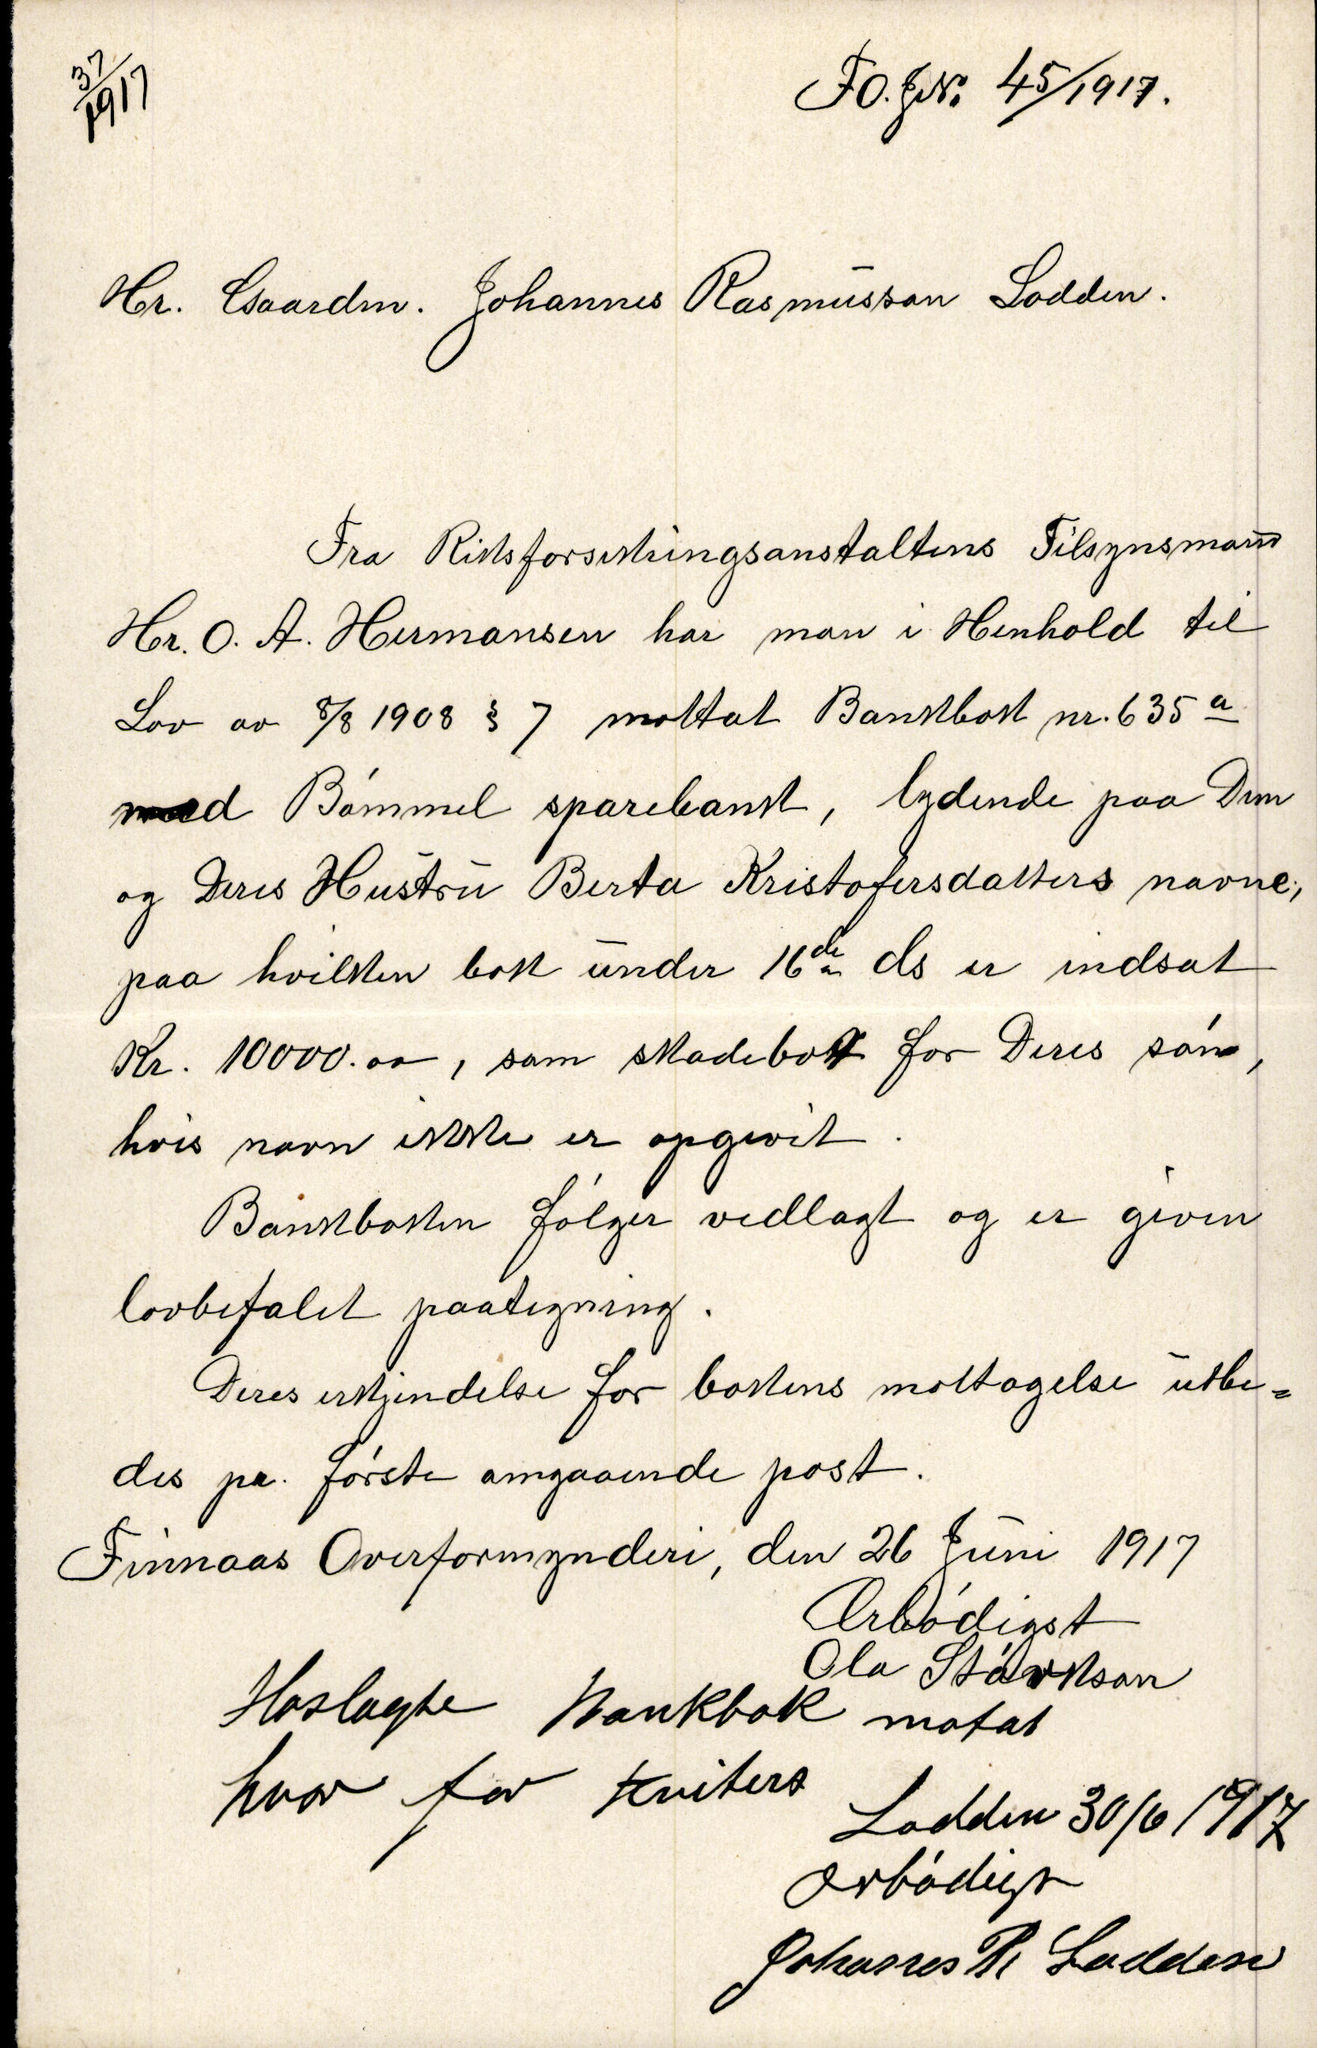 37/1917
F.O. J.N. 45/1917.
Hr. Gaardm. Johannes Rasmussøn Lodden.
Fra Riksforsikringsanstaltens Tilsynsmand
Hr. O. A. Hermansen har man i Henhold til
Lov av 8/8 1908 § 7 mottat Bankbok nr. 635 a
med Bømmel sparebank, lydende paa Dem
og Deres Hustru Berta Kristofersdatters navne,
paa hvilken bok under 16de ds er indsat
Kr. 10000.00, som skadebot for Deres søn,
hvis navn ikke er opgivit.
Bankboken følger vedlagt og er given
lovbefalet paategning.
Deres erkjendelse for bokens mottagelse utbe=
des pr. første omgaaende post.
Finnaas Overformynderi, den 26 Juni 1917
Ærbødigst
Ola Størkson
Hoslagte Bankbok motat
hvor for kviters
Lodden 30/6 1917
Ærbødigst
Johannes R Lodden